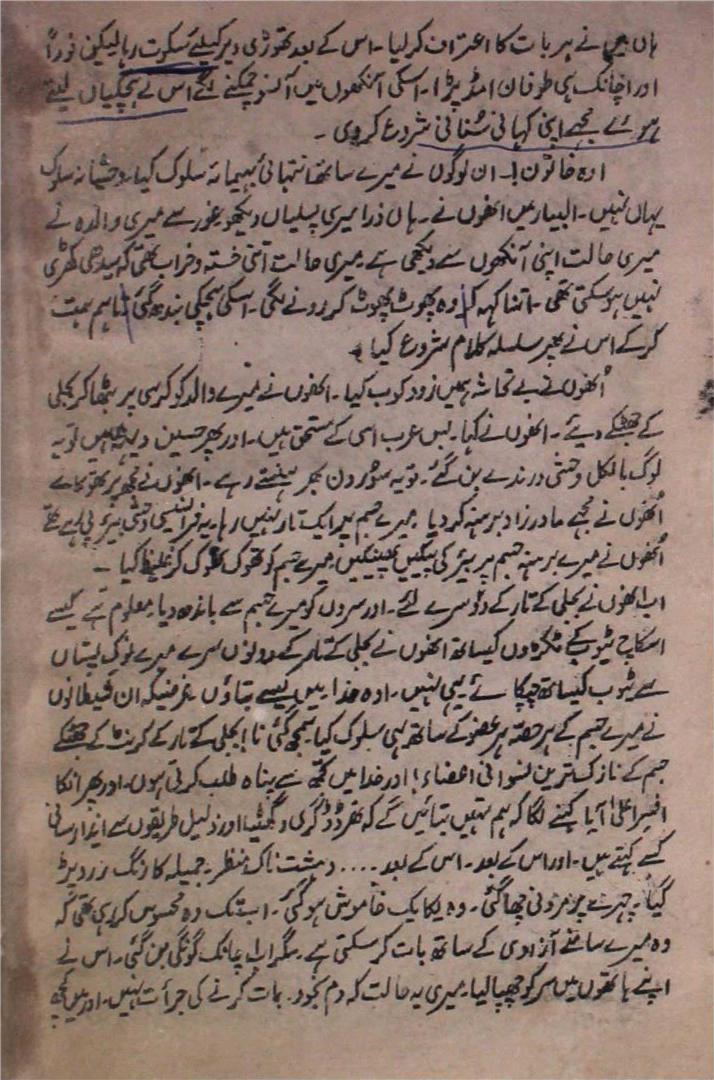 ہاں میں نے ہر بات کا اعتراف کر لیا۔ اس کے بعد تھوڑی دیر کیلئے سکوت رہا لیکن فوراً
اور اچانک ہی طوفان امڈ پڑا۔ اسکی آنکھوں میں آنسو چمکنے لگے اس نے ہچکیاں لیتے
ہوئے مجھے اپنی کہانی سُنانی شروع کر دی۔
اوہ خاتون! ان لوگوں نے میرے ساتھ انتہائی بہیمانہ سلوک کیا۔ وحشیانہ سلوک
یہاں نہیں۔ البیار میں انھوں نے۔ ہاں ذرا میری پسلیاں دیکھو غور سے میری والدہ نے
میری حالت اپنی آنکھوں سے دیکھی ہے۔ میری حالت اتنی خستہ و خراب تھی کہ سیدھی کھڑی
نہیں ہو سکتی تھی۔ اتنا کہہ کر وہ پھوٹ پھوٹ کر رونے لگی۔ اسکی ہچکی بندھ گئی تاہم ہمت
کر کے اس نے پھر سلسلہ کلام شروع کیا۔
اُنھوں نے بے تحاشہ ہمیں زد و کوب کیا۔ انھوں نے میرے والد کو کرسی پر بٹھا کر بجلی
کے جھٹکے دیئے۔ انھوں نے کہا۔ بس عرب اسی کے مستحق ہیں۔ اور پھر حسین دیتے ہیں تو یہ
لوگ بالکل وحشی درندے بن گئے۔ تو یہ سؤر دن بھر ہنستے رہے۔ انھوں نے مجھ پر تھوکا
اُنھوں نے مجھے مادر زاد برہنہ کر دیا میرے جسم پر ایک تار نہیں رہا۔ یہ فرانسیسی وحشی بیئر پی رہے تھے
اُنھوں نے میرے برہنہ جسم پر بیئر کی پیکیں پھینکیں میرے جسم کو تھوک تھوک کر غلیظ کیا۔
اب انھوں نے بجلی کے تار کے دو سرے لئے۔ اور سروں کو میرے جسم سے باندھ دیا۔ معلوم ہے کیسے
اسکاچ ٹیوب کے ٹکڑوں کیساتھ انھوں نے بجلی کے تار کے دونوں سرے میرے نوک پستاں
سے ٹیوب کیساتھ چپکائے یہی نہیں۔ اوہ خدا میں کیسے بتاؤں غرضیکہ ان شیطانوں
نے میرے جسم کے ہر حصہ ہر عضو کے ساتھ یہی سلوک کیا سمجھ گئی نا! بجلی کے تار کے کرنٹ کے جھٹکے
جسم کے نازک ترین نسوانی اعضاء! اور خدا میں تجھ سے پناہ طلب کرتی ہوں۔ اور پھر انکا
افسر اعلیٰ آیا کہنے لگا کہ ہم تمہیں بتائیں گے کہ تھرڈ ڈگری و گھٹیا اور ذلیل طریقوں سے ایذا رسانی
کسے کہتے ہیں۔ اور اس کے بعد۔ اس کے بعد .... دہشت ناک منظر۔ جمیلہ کا رنگ زرد پڑ
گیا۔ چہرے پر مردنی چھا گئی۔ وہ یکایک خاموش ہو گئی۔ اب تک وہ محسوس کر رہی تھی کہ
وہ میرے سامنے آزادی کے ساتھ بات کر سکتی ہے۔ مگر اب اچانک گونگی بن گئی۔ اس نے
اپنے ہاتھوں میں سر کو چھپا لیا۔ میری یہ حالت کہ دم بخود۔ بات کرنے کی جرأت نہیں۔ اور میں کچھ